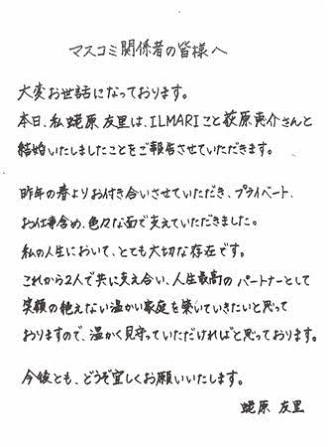 マスコミ関係者の皆様へ
大変お世話になっております。
本日、私蛯原友里は、ILMARIこと荻原英介さんと
結婚いたしましたことをご報告させていただきます。
昨年の春よりお付き合いさせていただき、プライベート、
お仕事含め、色々な面で支えていただきました。
私の人生において、とても大切な存在です。
これから2人で共に支え合い、人生最高のパートナーとして
笑顔の絶えない温かい家庭を築いていきたいと思って
おりますので、温かく見守っていただければと思っております。
今後とも、どうぞ宜しくお願いいたします。
蛯原 友里